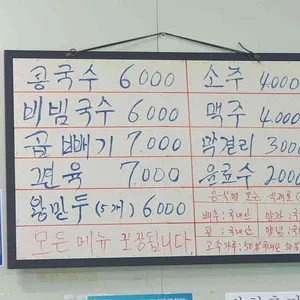 콩국수 6.000
비빔국수 6.000
곱빼기 7.000
편육 7.000
왕만두 (5개) 6000
모든 메뉴 포장됩니다.
소주 4.000
맥주 4.000
막걸리 3000
음료수 2000
배추: 국내산
콩: 국내산
고추가루: